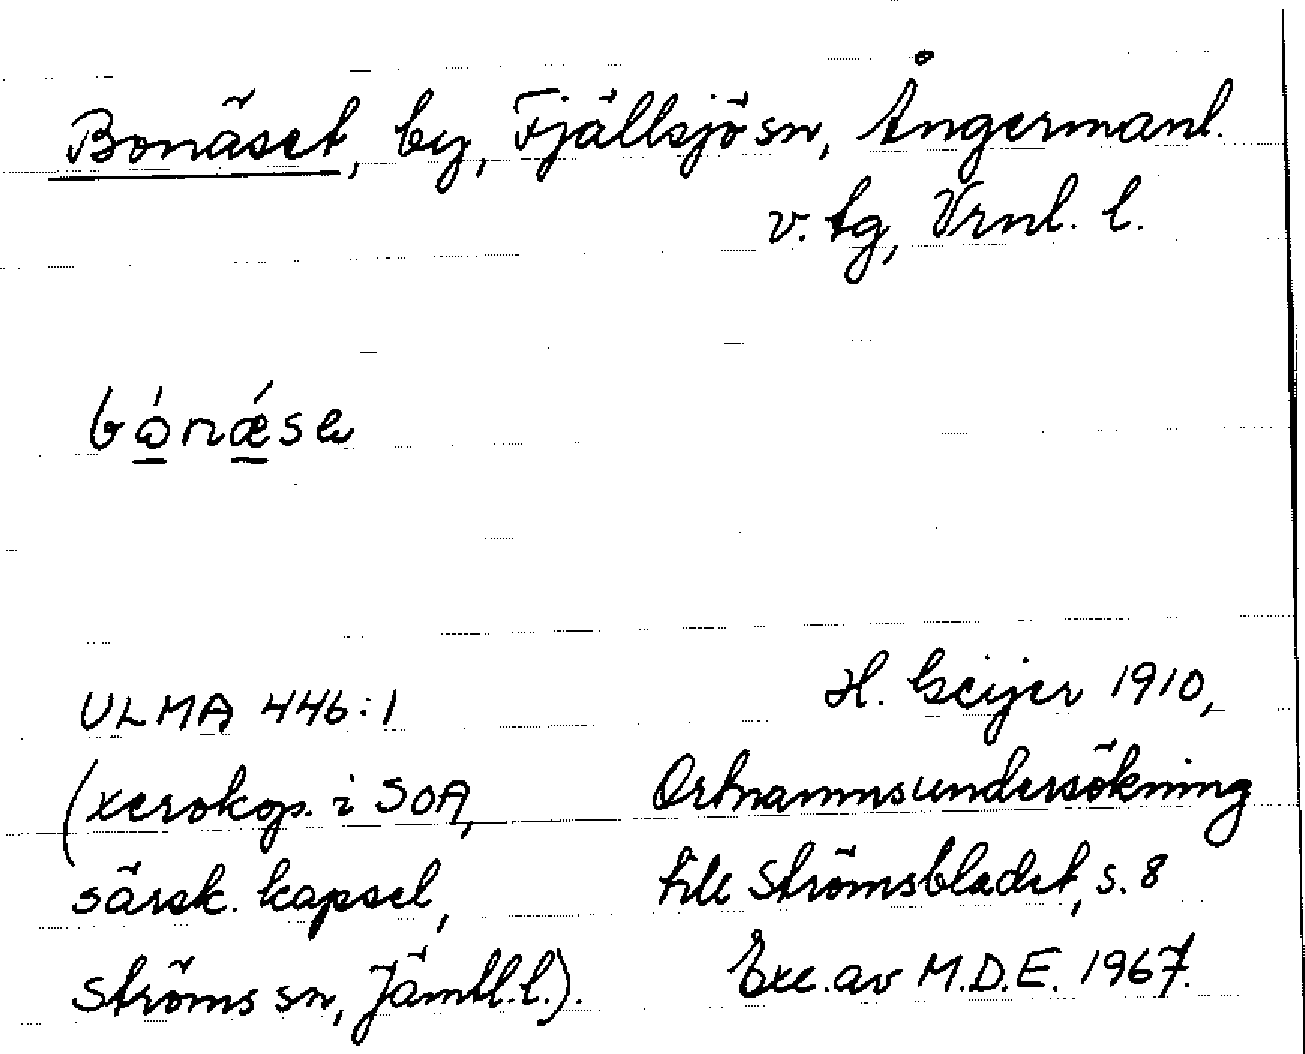 Bonäset, by, Fjällsjö sn, Ångermanl.
v. tg, Vrnl. l.
bɷ́nǽse
ULMA 446:1
(xerokop. i SOA,
särsk. kapsel,
Ströms sn, Jämtl. l.).
H. Geijer 1910,
Ortnamnsundersökning
till Strömsbladet, s. 8
Exc. av M.D.E. 1967.